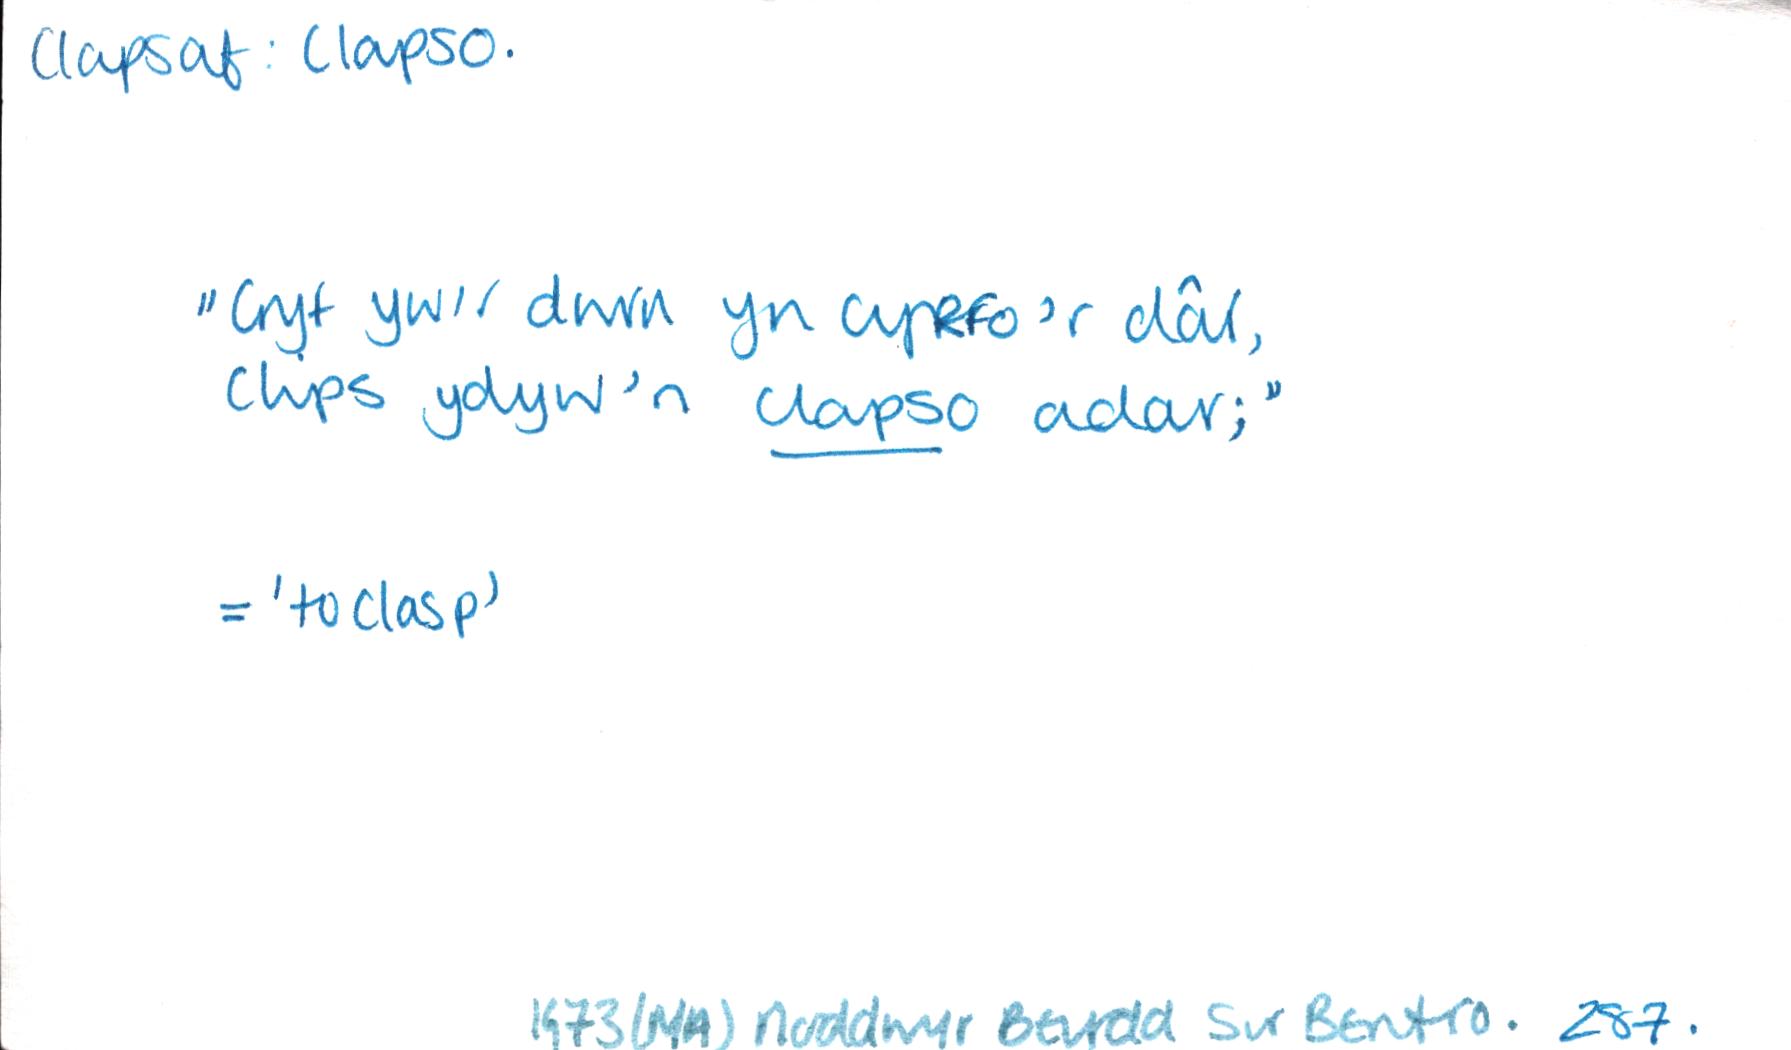 Clapsaf: Clapso.
"Cryf yw'r dwrn yn cyrfo'r dâr,
Clips ydyw'n clapso adar;"
= 'to clasp'
1973 (MA) Noddwyr Beirdd Sir Benfro. 287.